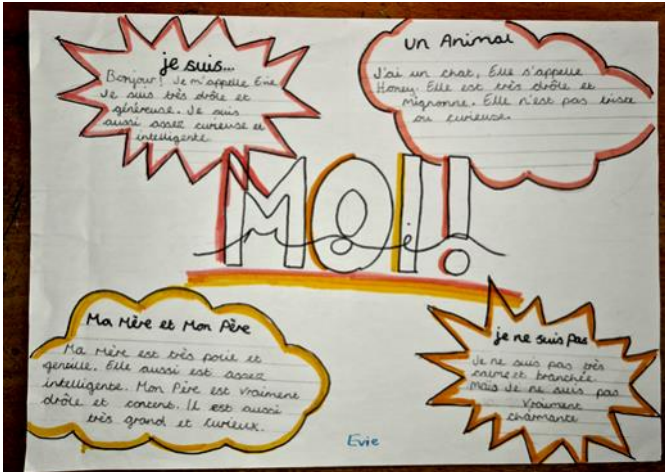 je suis...
Bonjour! Je m'appelle Evie
Je suis très drôle et
généreuse. Je suis
aussi assez curieuse et
intelligente.
Un Animal
J'ai un chat. Elle s'appelle
Honey. Elle est très drôle et
mignonne. Elle n'est pas triste
ou curieuse.
MOI!
Ma Mère et Mon Père
Ma Mère est très polie et
gentille. Elle aussi est assez
intelligente. Mon Père est vraiment
drôle et content. Il est aussi
très grand et curieux.
je ne suis pas
Je ne suis pas très
calme et branchée.
Mais Je ne suis pas
vraiment
charmante
Evie